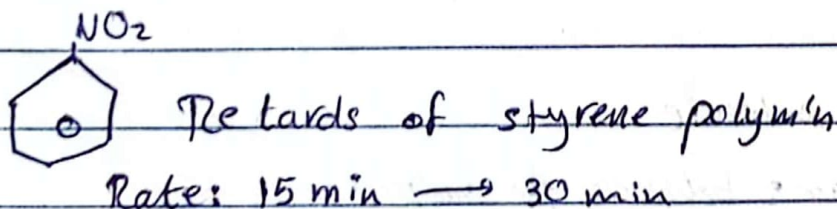 NO2
Retards of styrene polym'n
Rate: 15 min → 30 min